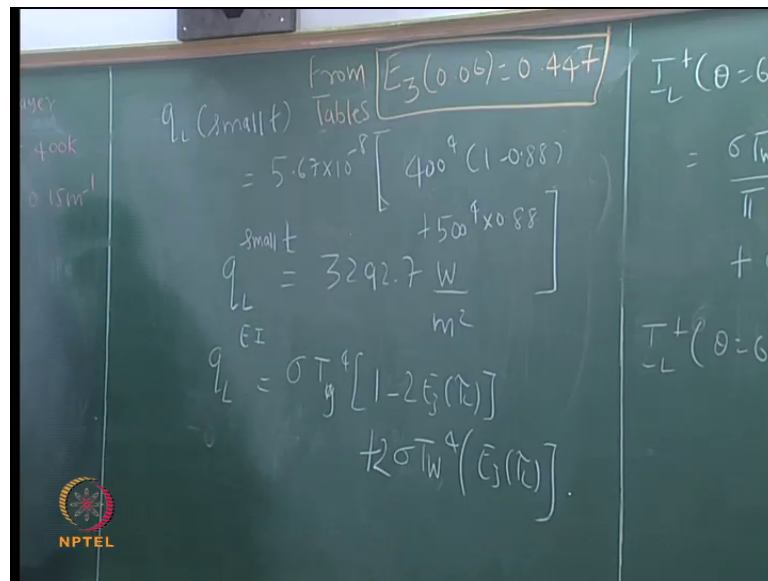 ayer
400k
0.15m⁻¹
From Tables E₃(0.06) = 0.447
q_L (small t)
= 5.67×10⁻⁸ [ 400⁴ (1-0.88)
+500⁴×0.88 ]
q_L^small t = 3292.7 W/m²
q_L^EI = σT_g⁴ [1-2E₃(τ_L)]
+2σT_W⁴ (E₃(τ_L)].
I_L⁺(θ=6
= σT_W/π
+
I_L⁺(θ=6
NPTEL